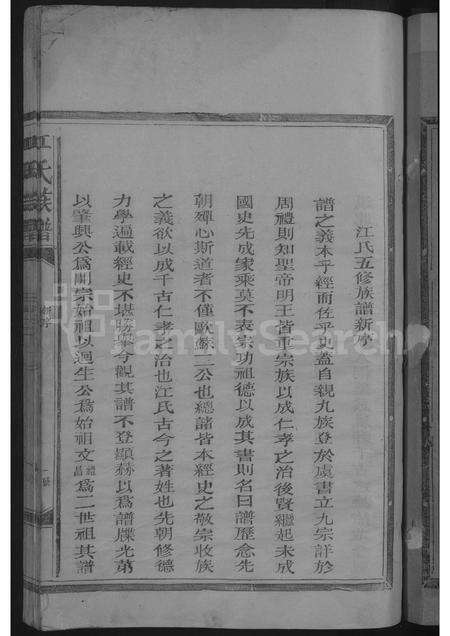 江氏五修族譜新序
譜之義本乎經而佐乎史蓋自親九族登於虞書立九宗詳於
周禮則知聖帝明王皆重宗族以成仁孝之治後賢繼起未成
國史先成家乘莫不表宗功祖德以成其書則名曰譜歷念先
朝殫心斯道者不僅歐蘇二公也總諸皆本經史之敬宗收族
之義欲以成千古仁孝之治也江氏古今之著姓也先朝修德
力學過載經史不堪勝舉今觀其譜不登顯赫以為譜牒光第
以肇興公為開宗始祖以迥生公為始祖文禮昌為二世祖其譜
江氏族譜
新序
一
FamilySearch